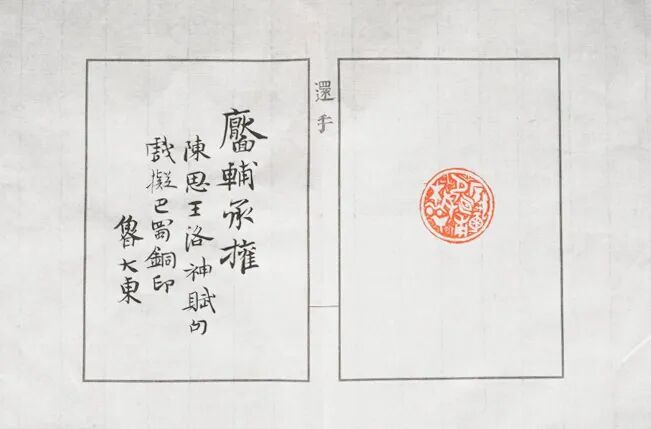 還手
靨輔承權
陳思王洛神賦句
戲擬巴蜀銅印
魯大東